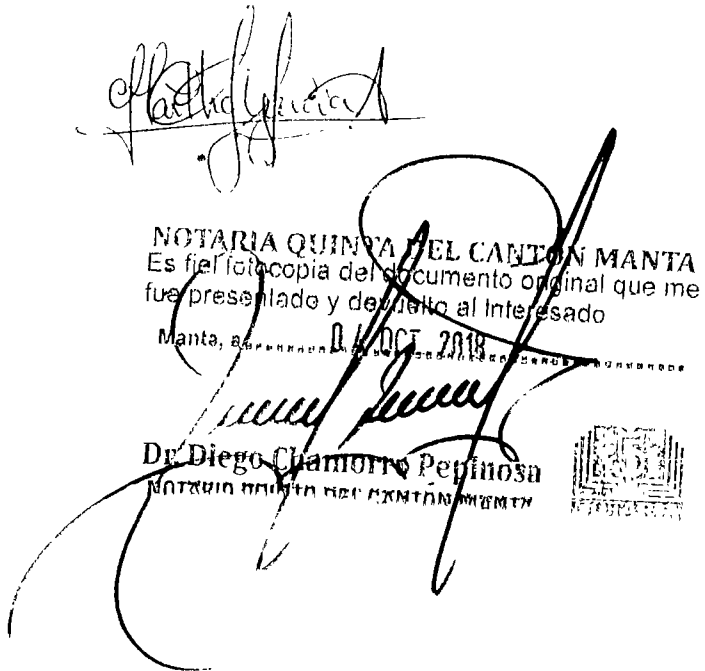 NOTARIA QUINTA DEL CANTON MANTA
Es fiel fotocopia del documento original que me
fue presentado y devuelto al Interesado
Manta, a 04 OCT 2018
Dr. Diego Chamorro Pepinosa
NOTARIO QUINTO DEL CANTON MANTA